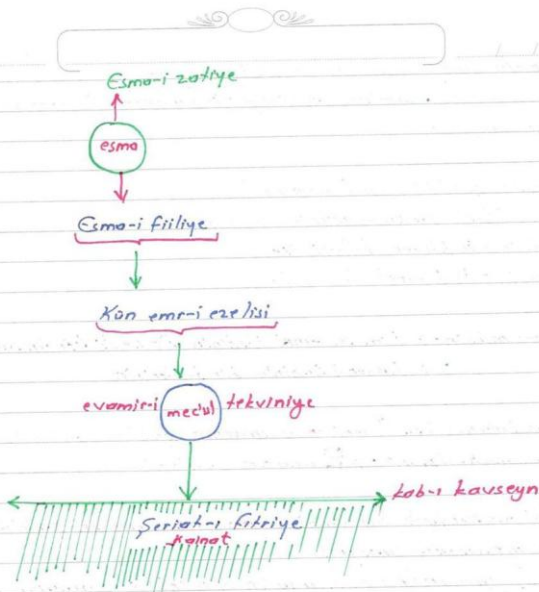 Esma-i zatiye
esma
Esma-i fiiliye
Kün emr-i ezelisi
evamir-i mec'ul tekviniye
kab-ı kavseyn
Şeriat-ı fıtriye
Kainat